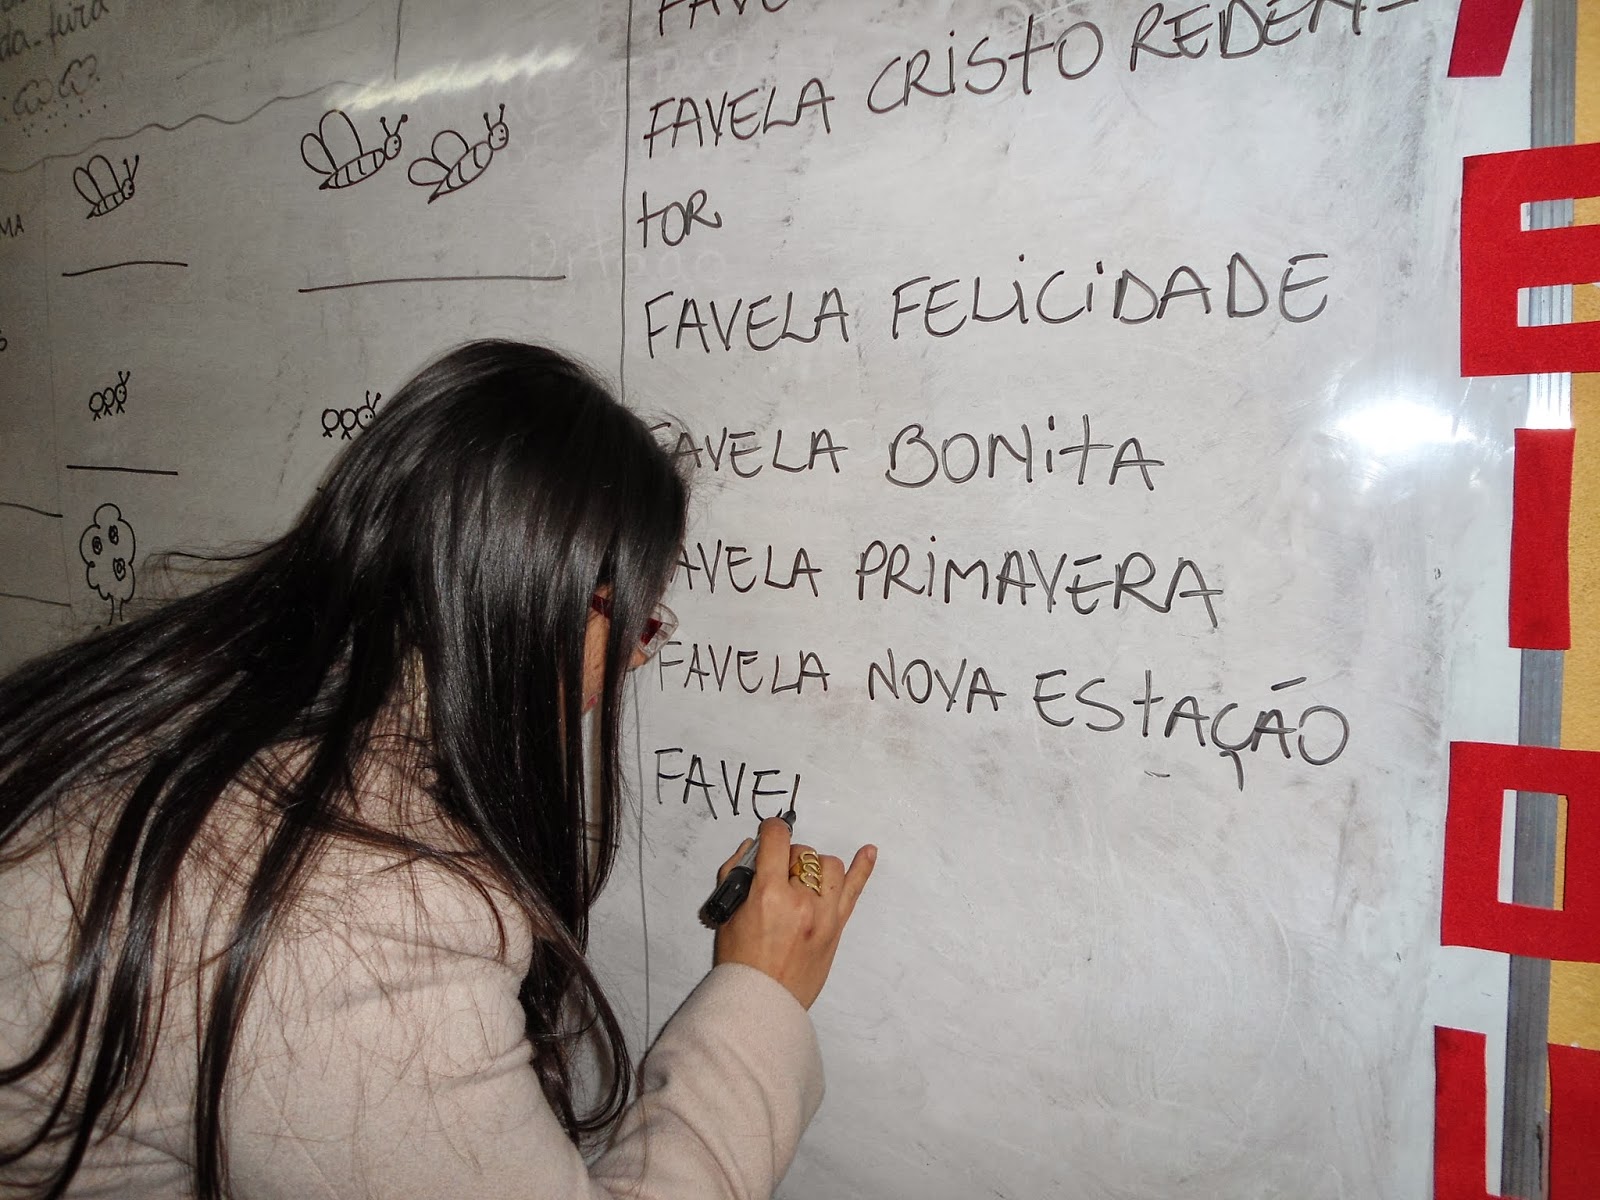 da-feira
MA
FAVE
FAVELA CRISTO REDEN-
TOR
FAVELA FELICIDADE
FAVELA BONITA
AVELA PRIMAVERA
FAVELA NOVA ESTAÇÃO
FAVEL
E
I
O